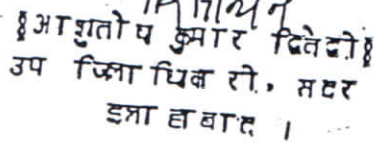 (आशुतोष कुमार द्विवेदी)
उप जिलाधिकारी, सदर
इलाहाबाद ।